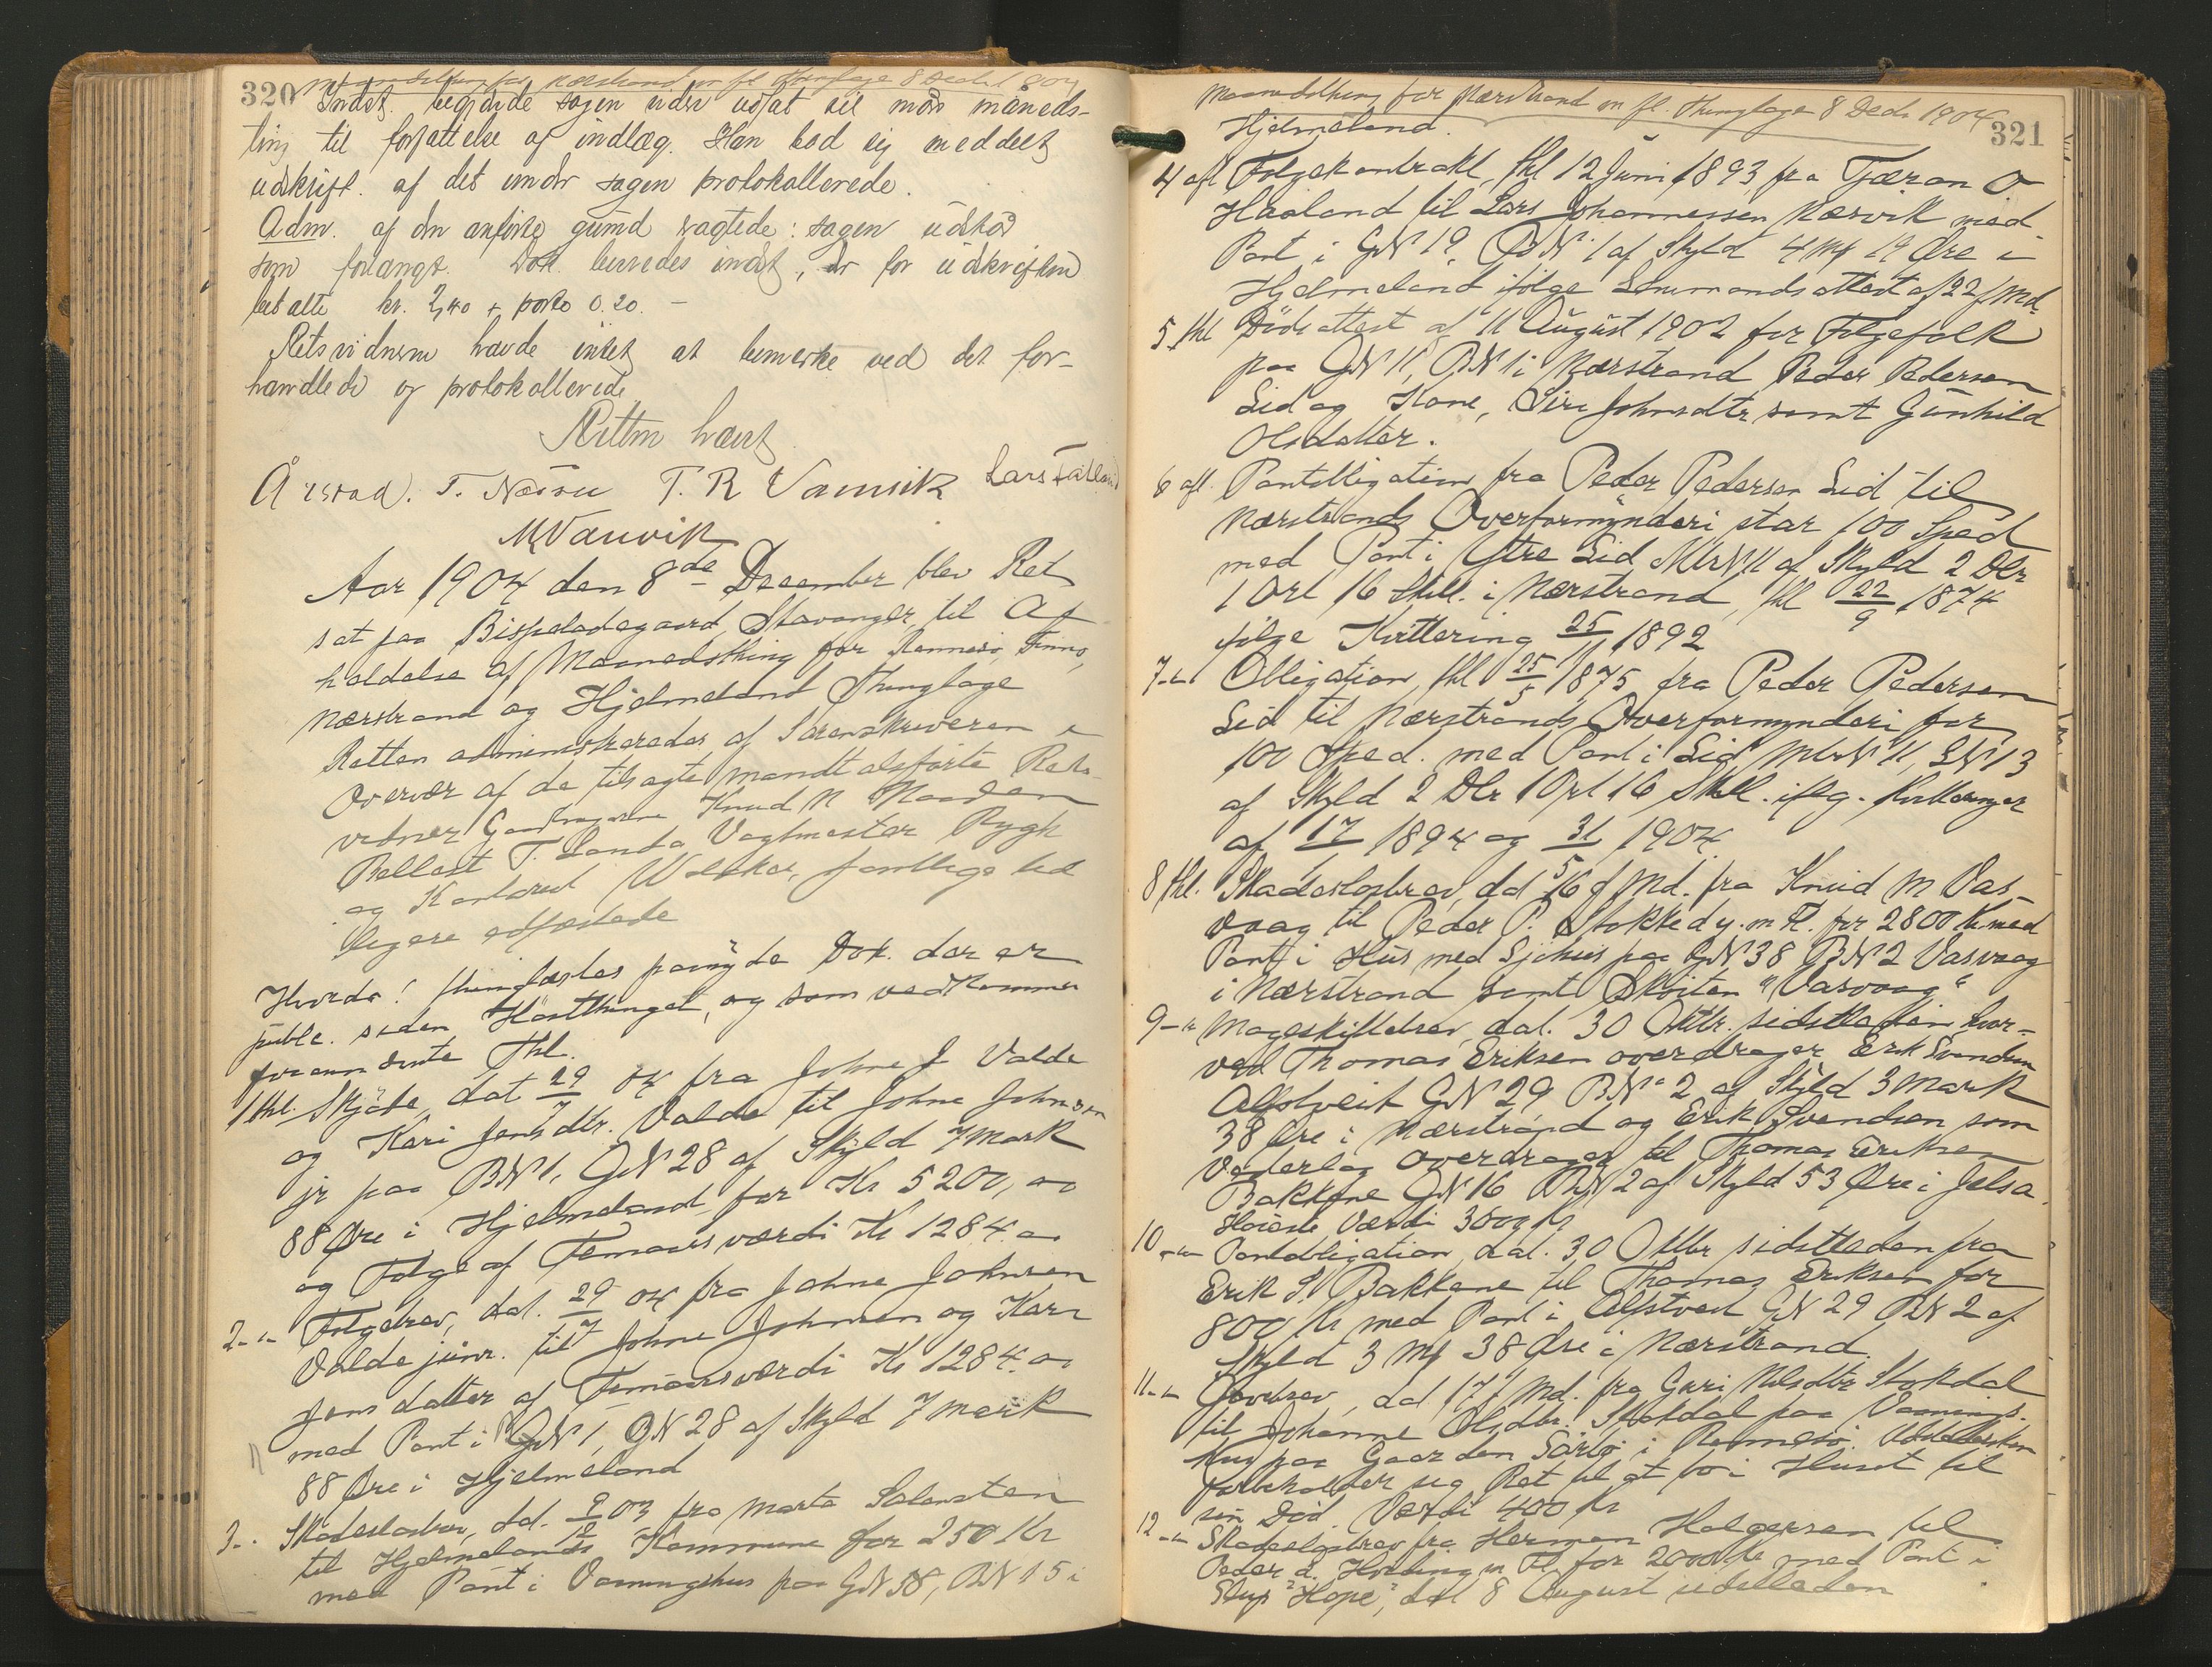 320
Nærstrand m fl. Thinglage 8 Decbr 1904
Indst. begjærde sagen udsat til månedsting
ting til forfattelse af indlæg. Han bad sig meddelt
udskrift af det under sagen protokollerede.
Adm. af den anførte grund vagtede: sagen udstår
som forlangt. Dok. leveredes indst., der for udskriften
betalte kr. 2,40 + porto 0.20. -
Retsvidnerne havde intet at bemerke ved det for-
handlede og protokollerede
Retten hævet
Årstad. T. Næsse T. R Vamvik Lars
M Vauvik
Aar 1904 den 8de December blev Ret
sat paa Bispeladegaard, Stavanger, til Af
holdelse af Maanedsthing for Rennesø, Finnø,
Nærstrand og Hjelmeland Thinglage
Retten administreredes af Sorenskriveren i
Overvær af de tilsagte mandtalsførte Rets-
vidner Gaardbrugerne Knud N
T. Landa Vagtmester Rygh
og Kontorist samtlige tid
ligere edfæstede
Hvorda! thinglæstes paany de Dok. der er
publ. siden Høstthinget, og som vedkommer
forannævnte Thl.
1 thl. Skjøde, dat 29/7 04 fra Johne J Valde
og Kari Jensdtr. Valde til Johne Johnsen
jr paa BN 1, GN 28 af Skyld 7 Mark
88 Øre i Hjelmeland for Kr 5200,00
og Folge af Femaarsværdi Kr 1284.00
2-"- Folgebrev, dat. 29/7 04 fra Johne Johnsen
Valde junr. til Johne Johnsen og Kari
Jensdatter af Femaarsværdi Kr 1284.00
med Pant i GN 1, BN 28 af Skyld 7 Mark
88 Øre i Hjelmeland
3-. Skadesløsbrev, dd. 9/12 03 fra Marta
til Hjelmelands Kommune for 250 Kr
med Pant i Vaaningshus paa GN 58, BN 15 i
Maanedsthing for Nærstrand m fl. Thinglage 8 Decbr 1904
321
Hjelmeland.
4 afl Folgekontrakt, thl 12 Juni 1893 fra Tjæran O
Haaland til Lars Johannessen Nærvik med
Pant i GN 19, BN 1 af Skyld 4 M 19 Øre i
Hjelmeland ifølge Lensmandsattest af 22 f Md.
5 thl Dødsattest af 11 August 1902 for Folgefolk
paa GN 11, BN 1 i Nærstrand Peder Pedersen
Lid og Kone, Siri Johnsdtr samt Gunhild
Olsdatter.
6 afl. Pantobligation fra Peder Pedersen Lid til
Nærstrands Overformynderi stor 100 Sped
med Pant i Ytre Lid MtrN 11 af Skyld 2 Dlr
1 Ort 16 Skill. i Nærstrand, thl 22/9 1874
ifølge Kvittering 25/11 1892
7-"- Obligation, thl 25/5 1875 fra Peder Pedersen
Lid til Nærstrands Overformynderi for
100 Sped. med Pant i Lid MtrN 11, LN 13
af Skyld 2 Dlr 1 Ort 16 Skill. iflg. Kvitteringer
af 17/1 1894 og 31/5 1904.
8 thl. Skadesløsbrev, dd 16 f Md. fra Knud M Vas-
vaag til Peder P. Stokkedy. m Fl. for 2800 Kr med
Pant i Hus med Sjøhus paa GN 38 BN 2 Vasvaag
i Nærstrand samt Skøiten "Vasvaag"
9-"- Mageskiftebrev, dat. 30 Oktbr. sidstleden hvor-
ved Thomas Eriksen overdrager Erik Svendsen
Alfstveit GN 29 BN° 2 af Skyld 3 Mark
38 Øre i Nærstrand og Erik Svendsen som
Vederlag overdrager til Thomas Eriksen
Bakkene GN 16 BN 2 af Skyld 53 Øre i Jelsa.
Høieste Værdi 3600 Kr
10-"- Pantobligation, dat. 30 Oktbr sidstleden fra
Erik S. Bakkene til Thomas Eriksen for
800 Kr med Pant i Alfstveit GN 29 BN 2 af
Skyld 3 M 38 Øre i Nærstrand.
11-"- Gavebrev, dd 17 f Md. fra Guri Nilsdtr Stokdal
til Johanne Olsdtr. Stokdal paa Vaanings-
hus paa Gaarden Sørbø i Rennesø. Udstedersken
forbeholder sig Ret til at bo i Huset til
sin Død. Værdi 400 Kr
12-"- Skadesløsbrev fra Herman Holgersen til
Peder d. m Fl for 2000 Kr med Pant i
Slup "Hope", dd 8 August sidstleden